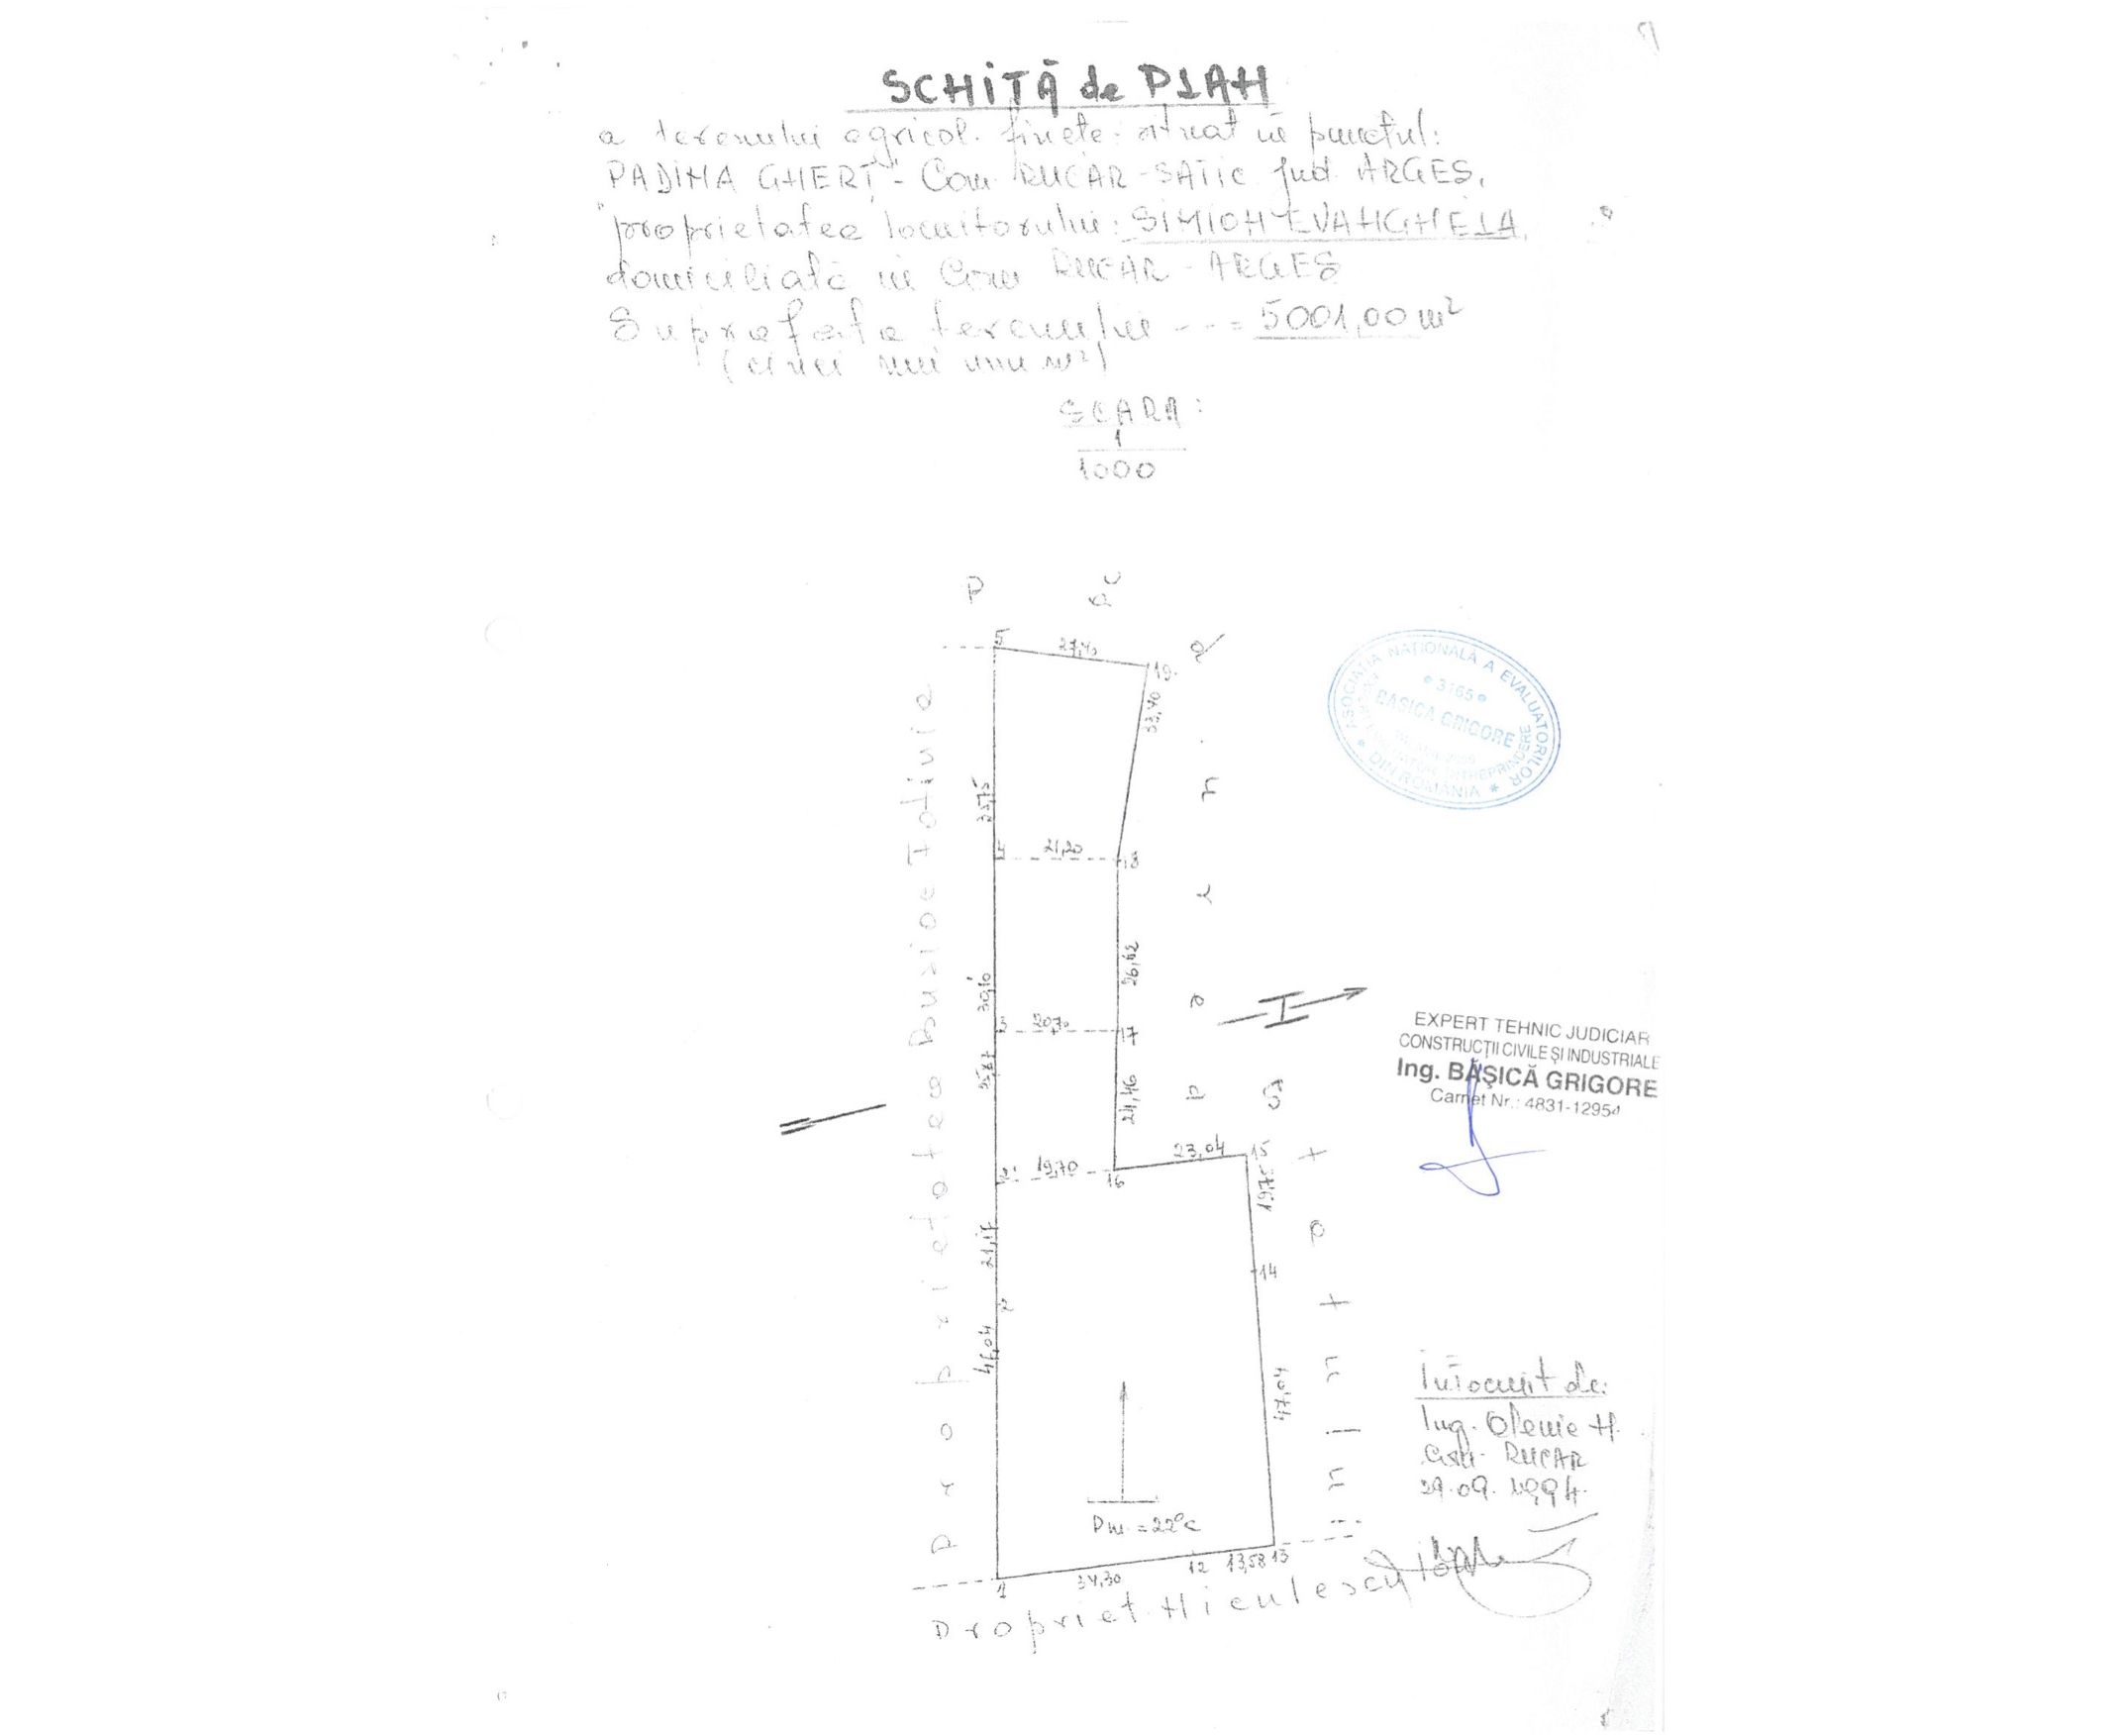 SCHIȚĂ de PLAN
a terenului agricol finețe situat în punctul:
PADINA GHERȚ - Com RUCAR-SATIC Jud ARGEȘ,
proprietatea locuitorului: SIMION EVANGHELA
domiciliată în Com RUCAR - ARGEȘ
Suprafața terenului --- = 5001,00 m²
(cinci mii unu m²)
SCARA:
1
1000
P
5
27,40
19
33,40
ASOCIATIA NATIONALA A EVALUATORILOR
DIN ROMÂNIA
3165
BASICA GRIGORE
21,20
18
26,62
30,10
3
20,70
17
24,46
23,04
15
19,70
16
19,75
14
21,17
47,04
EXPERT TEHNIC JUDICIAR
CONSTRUCȚII CIVILE ȘI INDUSTRIALE
Ing. BĂȘICĂ GRIGORE
Carnet Nr.: 4831-12954
Proprietatea
Pm = 22°c
1
34,30
12
13,58
13
Propriet. Niculescu
Întocmit de:
Ing.
Com RUCAR
29.09.1994